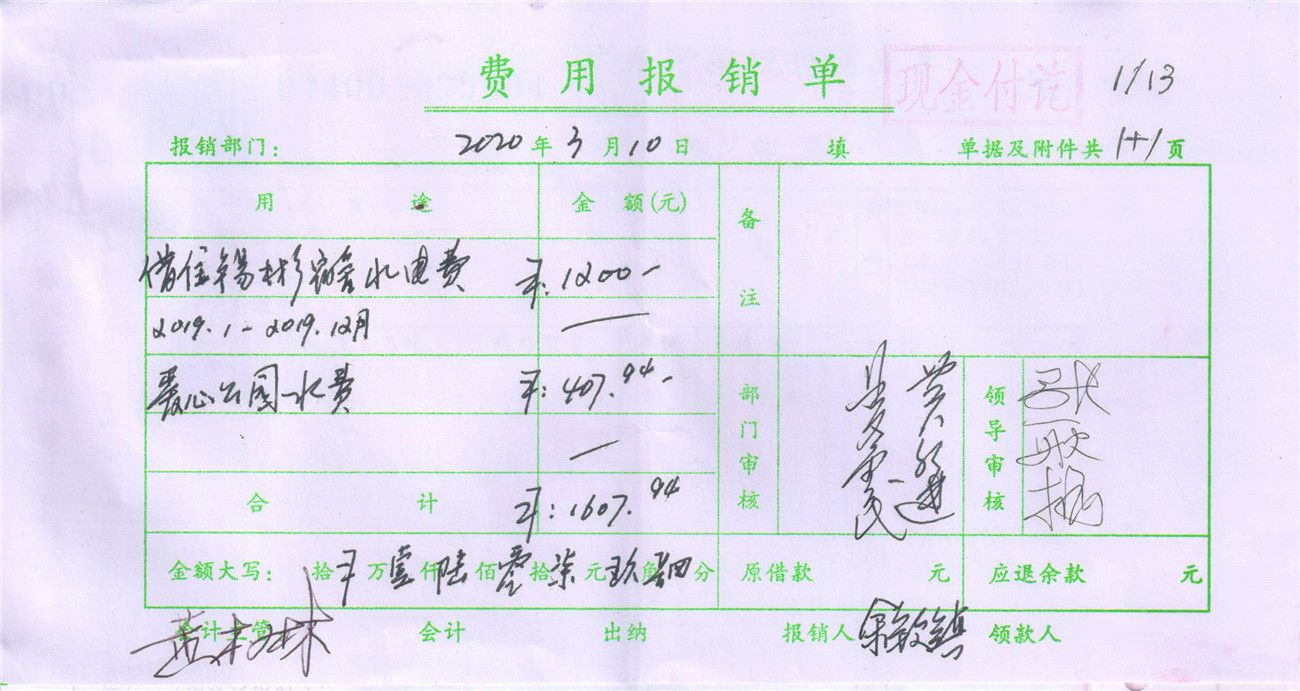 费用报销单 现金付讫 1/13
报销部门： 2020年3月10日 填 单据及附件共1+1页
用途 金额(元) 备注
借住锡彬宿舍水电费 ￥:1200-
2019.1-2019.12月 —
爱心公园水费 ￥:407.94-
—
部门审核 领导审核
合计 ￥:1607.94
金额大写： 拾￥万壹仟陆佰零拾柒元玖角肆分 原借款 元 应退余款 元
会计主管 会计 出纳 报销人 领款人